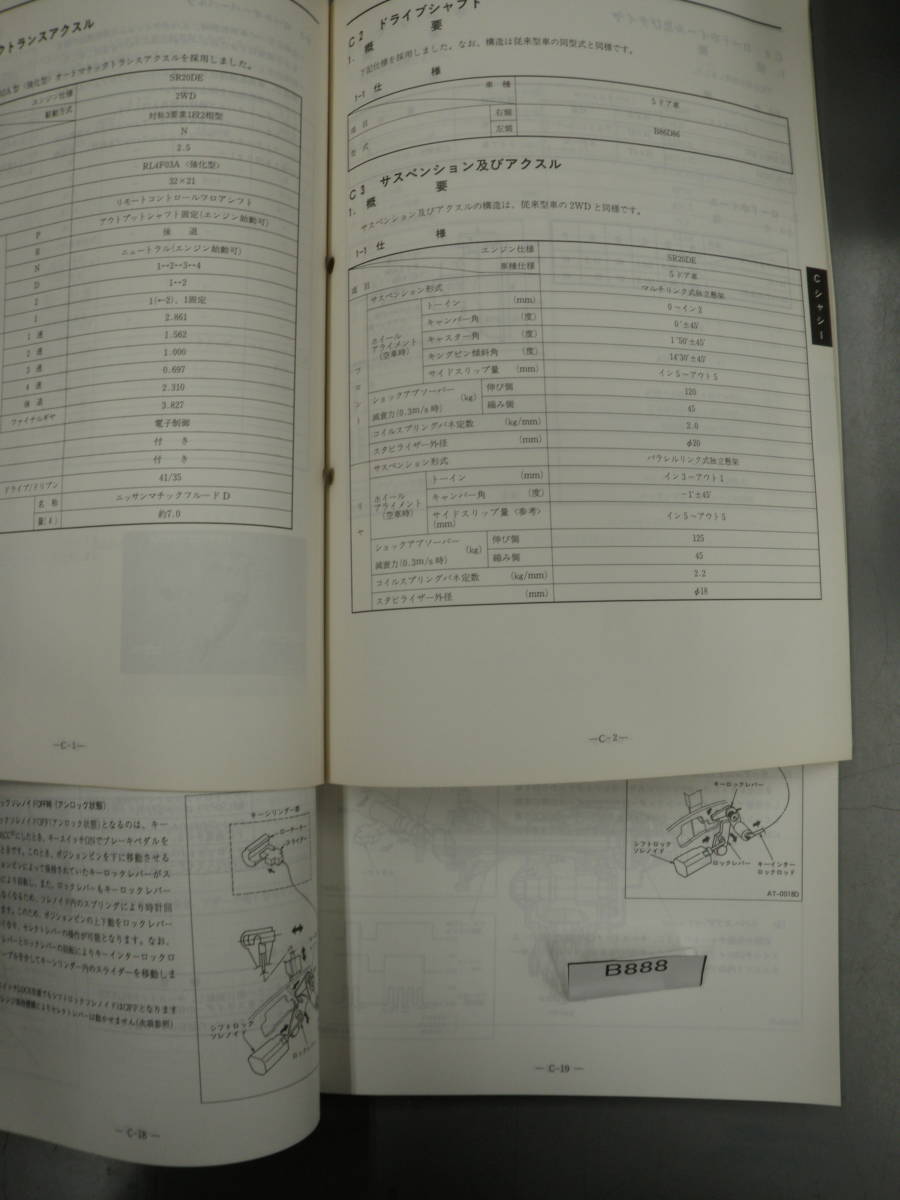 クトランスアクスル
0A型〈強化型〉オートマチックトランスアクスルを採用しました。
エンジン仕様 SR20DE
駆動方式 2WD
対称3要素1段2相型
N
2.5
RL4F03A〈強化型〉
32×21
リモートコントロールフロアシフト
P アウトプットシャフト固定(エンジン始動可)
R 後退
N ニュートラル(エンジン始動可)
D 1↔2↔3↔4
2 1↔2
1 1(←2)、1固定
1速 2.861
2速 1.562
3速 1.000
4速 0.697
後退 2.310
ファイナルギヤ 3.827
電子制御
付き
付き
ドライブ/ドリブン 41/35
名称 ニッサンマチックフルードD
量(ℓ) 約7.0
—C-1—
C2 ドライブシャフト
1. 概要
下記仕様を採用しました。なお、構造は従来型車の同型式と同様です。
1-1 仕様
車種 5ドア車
項目
型式 右側 B86D86
左側
C3 サスペンション及びアクスル
1. 概要
サスペンション及びアクスルの構造は、従来型車の2WDと同様です。
1-1 仕様
エンジン仕様 SR20DE
車種仕様 5ドア車
項目
フロント
サスペンション形式 マルチリンク式独立懸架
ホイールアライメント(空車時)
トーイン (mm) 0〜イン2
キャンバー角 (度) 0°±45′
キャスター角 (度) 1°50′±45′
キングピン傾斜角 (度) 14°30′±45′
サイドスリップ量 (mm) イン5〜アウト5
ショックアブソーバー減衰力(0.3m/s時) (kg)
伸び側 120
縮み側 45
コイルスプリングバネ定数 (kg/mm) 2.0
スタビライザー外径 (mm) φ20
リヤ
サスペンション形式 パラレルリンク式独立懸架
ホイールアライメント(空車時)
トーイン (mm) イン3〜アウト1
キャンバー角 (度) −1°±45′
サイドスリップ量〈参考〉(mm) イン5〜アウト5
ショックアブソーバー減衰力(0.3m/s時) (kg)
伸び側 125
縮み側 45
コイルスプリングバネ定数 (kg/mm) 2.2
スタビライザー外径 (mm) φ18
—C-2—
C シャシー
ックソレノイドOFF時(アンロック状態)
ックソレノイドOFF(アンロック状態)となるのは、キー
ACCにしたとき、キースイッチONでブレーキペダルを
ときです。このとき、ポジションピンを下に移動させる
ションピンによって保持されていたキーロックレバーがス
により回転し、また、ロックレバーもキーロックレバー
なくなるため、ソレノイド内のスプリングにより時計回
ます。このため、ポジションピンの上下動をロックレバー
くなり、セレクトレバーの操作が可能となります。なお、
レバーとロックレバーの回転によりキーインターロックロ
ーブルを介してキーシリンダー内のスライダーを移動しま
イッチLOCK位置でもシフトロックソレノイドはOFFとなります
レンジ保持機構によりセレクトレバーは動かせません(次項参照)
キーシリンダー部
ローター
スライダー
シフトロックソレノイド
ロックレバー
—C-18—
キーロックレバー
シフトロックソレノイド
ロックレバー
キーインターロックロッド
AT-0018D
B888
—C-19—